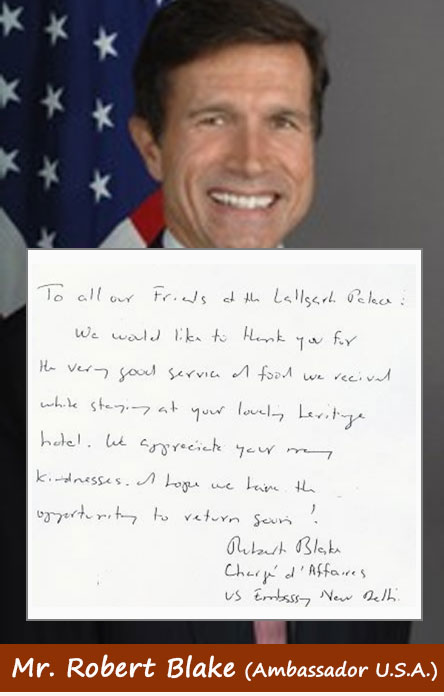 To all our Friends at the Lallgarh Palace:
We would like to thank you for
the very good service & food we received
while staying at your lovely heritage
hotel. We appreciate your many
kindnesses. & hope we have the
opportunity to return soon!
Robert Blake
Chargé d'Affaires
US Embassy New Delhi.
Mr. Robert Blake (Ambassador U.S.A.)